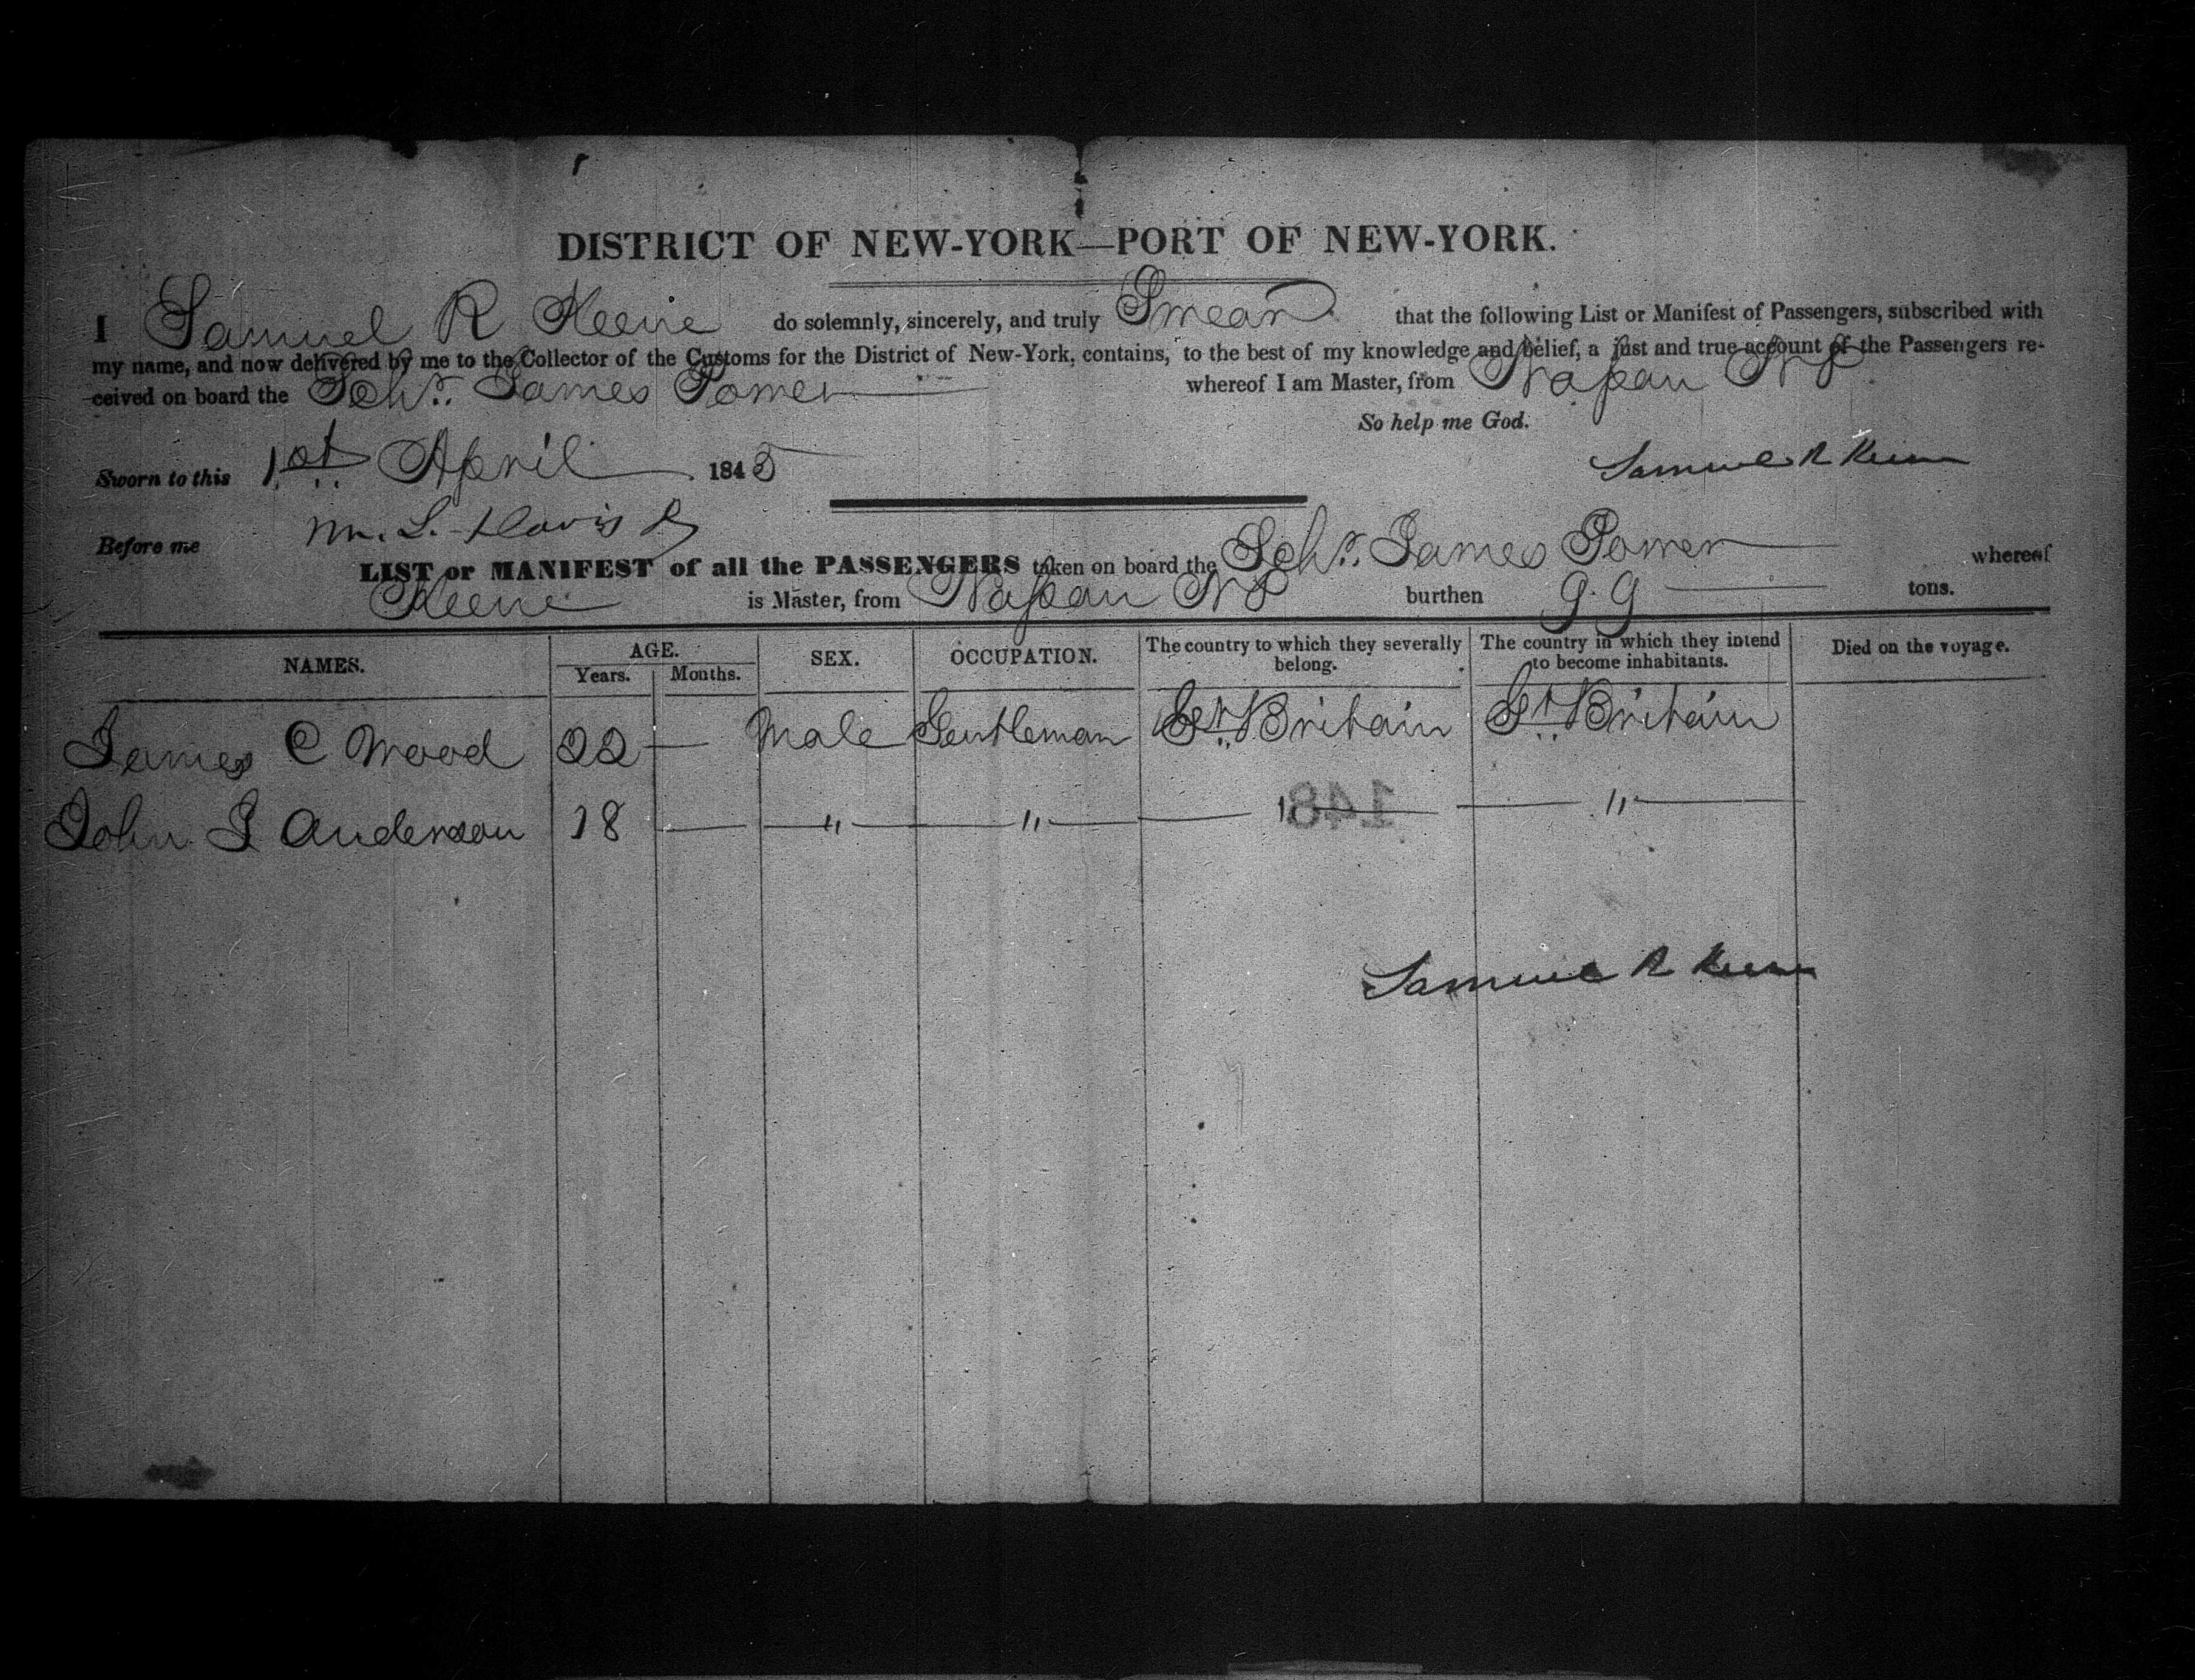 DISTRICT OF NEW-YORK—PORT OF NEW-YORK.
I Samuel R Keene do solemnly, sincerely, and truly Swear that the following List or Manifest of Passengers, subscribed with
my name, and now delivered by me to the Collector of the Customs for the District of New-York, contains, to the best of my knowledge and belief, a just and true account of the Passengers re-
ceived on board the Schr. James Power whereof I am Master, from Nassau NP
So help me God.
Sworn to this 1st April 1845
Samuel R Keene
Before me
LIST or MANIFEST of all the PASSENGERS taken on board the Schr. James Power whereof
Keene is Master, from Nassau NP burthen 99 tons.
NAMES. AGE. Years. Months. SEX. OCCUPATION. The country to which they severally belong. The country in which they intend to become inhabitants. Died on the voyage.
James C Wood 22 — Male Gentleman Gt. Britain Gt. Britain
John J Anderson 18 — " " " "
148
Samuel R Keene